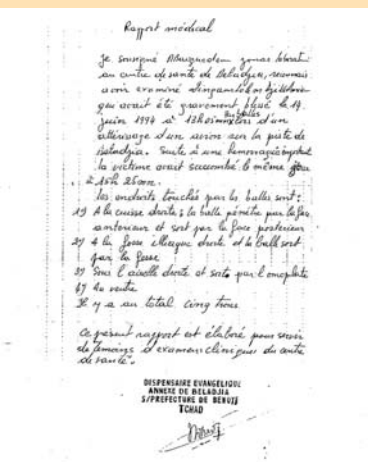 Rapport médical
Je soussigné Mbaiguedem Jonas laborant
au centre de santé de Beladjia, reconnais
avoir examiné
qui avait été gravement blessé le 19
juin 1994 à 13h lors d'un
atterissage d'un avion sur la piste de
Beladjia. Suite à une hemorragie
la victime avait succombé le même jour
à 15h 25mn.
les endroits touchés par les balles sont:
1°) A la cuisse droite; la balle pénètre par la face
anterieur et sort par la face posterieur
2°) A la fosse illiaque droite et la balle sort
par la fesse
3°) Sous l'aiselle droite et sorte par l'omoplate
4°) Au ventre
Il y a au total cinq trous.
Ce présent rapport est élaboré pour servir
de témoins d'examens cliniques du centre
de santé.
DISPENSAIRE EVANGELIQUE
ANNEXE DE BELADJIA
S/PREFECTURE DE BEBOTO
TCHAD